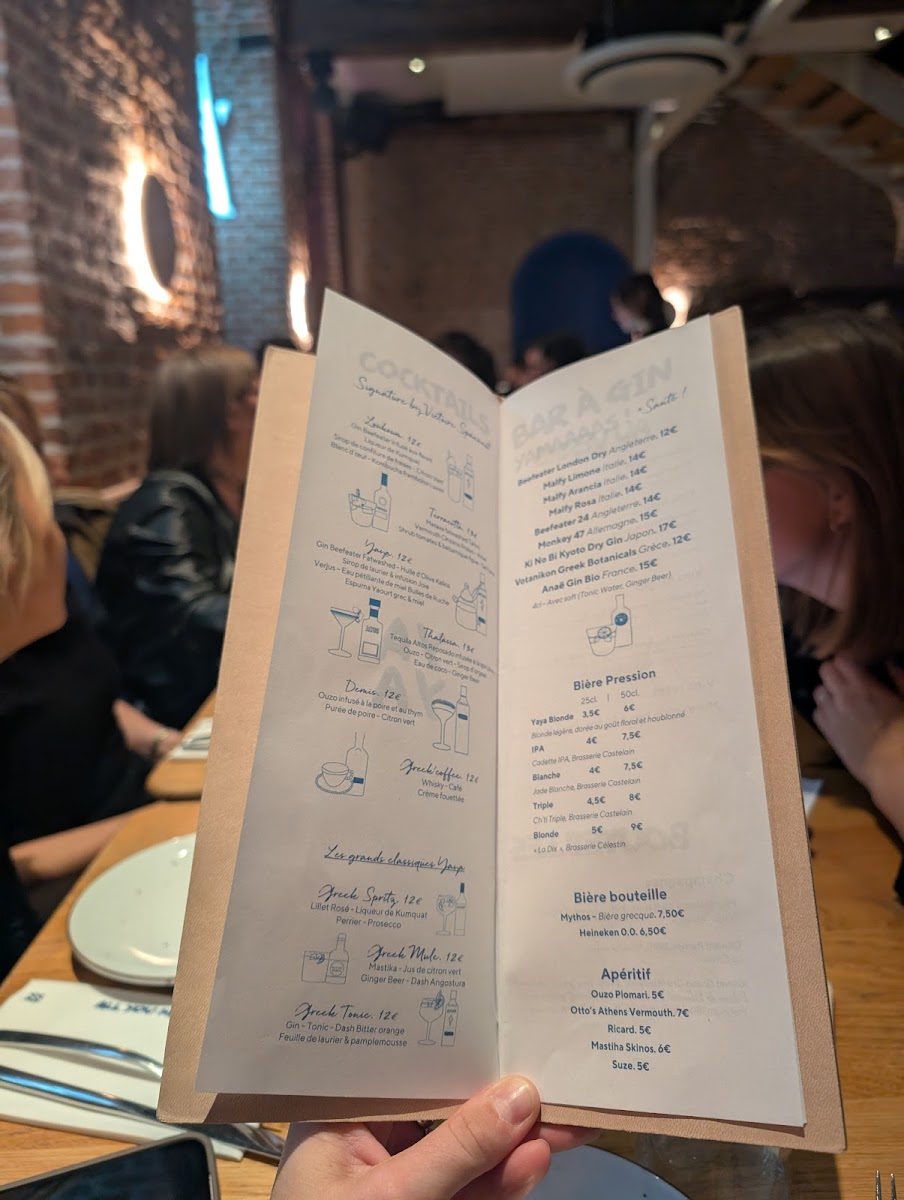 COCKTAILS
Signature by
Loukoum. 12€
Gin Beefeater infusé aux fleurs
Liqueur de Kumquat
Sirop de confiture de fraises - Citron vert
Blanc d'œuf - Kombucha framboise
13€
Shrub tomates &
Yaya. 12€
Gin Beefeater Fatwashed - Huile d'Olive Kalios
Sirop de laurier & infusion Joie
Verjus - Eau pétillante de miel Bulles de Ruche
Espuma Yaourt grec & miel
Thalassa. 13€
Tequila Altos Reposado infusée
Ouzo - Citron vert - Sirop d'orgeat
Eau de coco - Ginger Beer
Demis. 12€
Ouzo infusé à la poire et au thym
Purée de poire - Citron vert
Greek coffee. 12€
Whisky - Café
Crème fouettée
Les grands classiques Yaya
Greek Spritz. 12€
Lillet Rosé - Liqueur de Kumquat
Perrier - Prosecco
Greek Mule. 12€
Mastika - Jus de citron vert
Ginger Beer - Dash Angostura
Greek Tonic. 12€
Gin - Tonic - Dash Bitter orange
Feuille de laurier & pamplemousse
BAR À GIN
YAMAAAAS ! • Santé !
Beefeater London Dry Angleterre. 12€
Malfy Limone Italie. 14€
Malfy Arancia Italie. 14€
Malfy Rosa Italie. 14€
Beefeater 24 Angleterre. 14€
Monkey 47 Allemagne. 15€
Ki No Bi Kyoto Dry Gin Japon. 17€
Votanikon Greek Botanicals Grèce. 12€
Anaë Gin Bio France. 15€
4cl - Avec soft (Tonic Water, Ginger Beer)
Bière Pression
25cl. | 50cl.
Yaya Blonde 3,5€ 6€
Blonde légère, dorée au goût floral et houblonné
IPA 4€ 7,5€
Cadette IPA, Brasserie Castelain
Blanche 4€ 7,5€
Jade Blanche, Brasserie Castelain
Triple 4,5€ 8€
Ch'ti Triple, Brasserie Castelain
Blonde 5€ 9€
« La Dix », Brasserie Célestin
Bière bouteille
Mythos - Bière grecque. 7,50€
Heineken 0.0. 6,50€
Apéritif
Ouzo Plomari. 5€
Otto's Athens Vermouth. 7€
Ricard. 5€
Mastiha Skinos. 6€
Suze. 5€
ALL YOU N